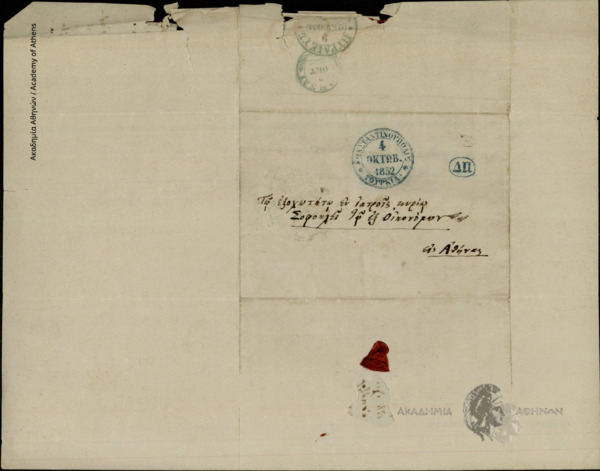 Ακαδημία Αθηνών / Academy of Athens
ΚΩΝΣΤΑΝΤΙΝΟΥΠΟΛΙΣ
4
ΟΚΤΩΒ.
1852
ΤΟΥΡΚΙΑ
ΔΠ
Τῷ ἐξοχωτάτῳ ἐν ἰατροῖς κυρίῳ
Σοφοκλεῖ τῷ ἐξ Οἰκονόμων
εἰς Ἀθήνας
ΑΚΑΔΗΜΙΑ ΑΘΗΝΩΝ